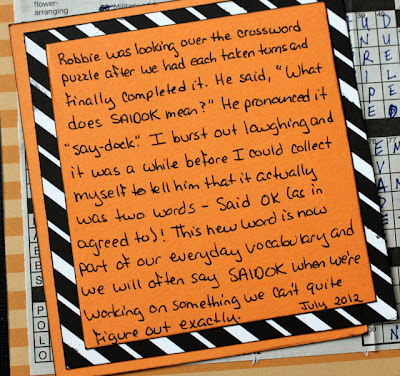 flower-
arranging
Robbie was looking over the crossword
puzzle after we had each taken turns and
finally completed it. He said, "What
does SAIDOK mean?" He pronounced it
"say-dock". I burst out laughing and
it was a while before I could collect
myself to tell him that it actually
was two words - Said OK (as in
agreed to)! This new word is now
part of our everyday vocabulary and
we will often say SAIDOK when we're
working on something we can't quite
figure out exactly.
July 2012
POLO